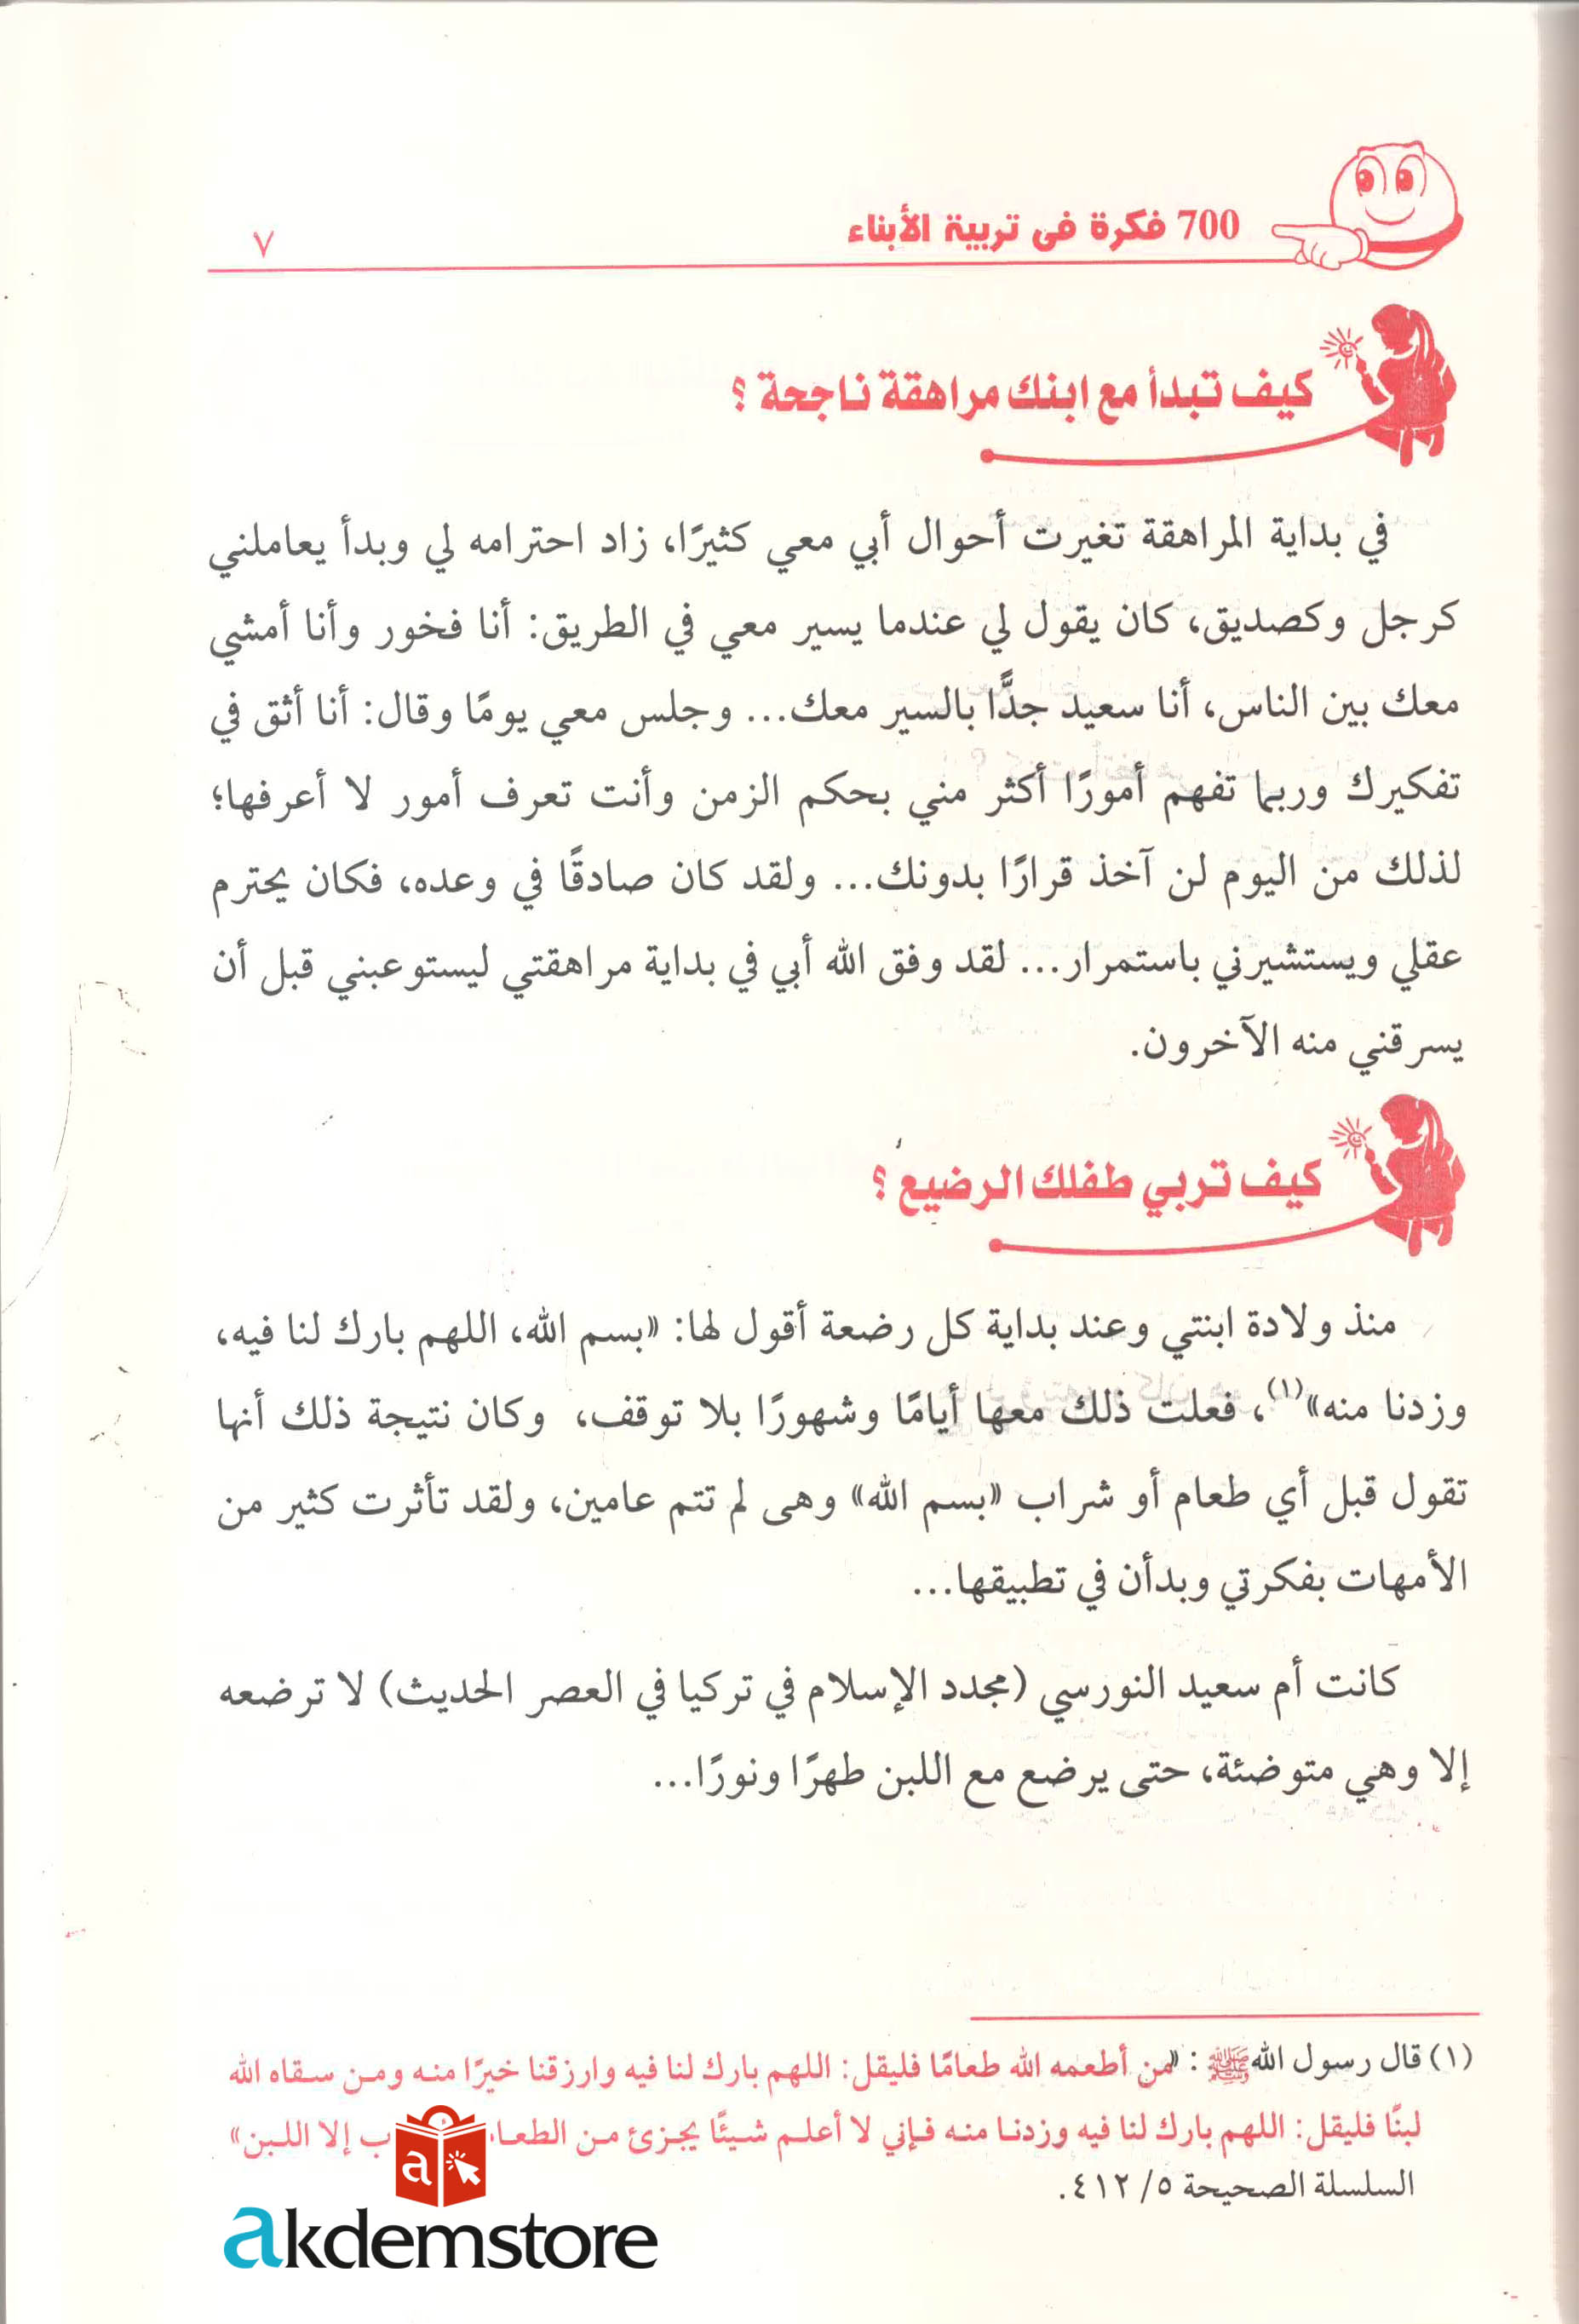 700 فكرة فى تربية الأبناء
٧
كيف تبدأ مع ابنك مراهقة ناجحة ؟
في بداية المراهقة تغيرت أحوال أبي معي كثيرًا، زاد احترامه لي وبدأ يعاملني
كرجل وكصديق، كان يقول لي عندما يسير معي في الطريق: أنا فخور وأنا أمشي
معك بين الناس، أنا سعيد جدًّا بالسير معك... وجلس معي يومًا وقال: أنا أثق في
تفكيرك وربما تفهم أمورًا أكثر مني بحكم الزمن وأنت تعرف أمور لا أعرفها؛
لذلك من اليوم لن آخذ قرارًا بدونك... ولقد كان صادقًا في وعده، فكان يحترم
عقلي ويستشيرني باستمرار... لقد وفق الله أبي في بداية مراهقتي ليستوعبني قبل أن
يسرقني منه الآخرون.
كيف تربي طفلك الرضيع ؟
منذ ولادة ابنتي وعند بداية كل رضعة أقول لها: «بسم الله، اللهم بارك لنا فيه،
وزدنا منه»(١)، فعلت ذلك معها أيامًا وشهورًا بلا توقف، وكان نتيجة ذلك أنها
تقول قبل أي طعام أو شراب «بسم الله» وهى لم تتم عامين، ولقد تأثرت كثير من
الأمهات بفكرتي وبدأن في تطبيقها...
كانت أم سعيد النورسي (مجدد الإسلام في تركيا في العصر الحديث) لا ترضعه
إلا وهي متوضئة، حتى يرضع مع اللبن طهرًا ونورًا...
(١) قال رسول الله ﷺ : «من أطعمه الله طعامًا فليقل: اللهم بارك لنا فيه وارزقنا خيرًا منه ومن سقاه الله
لبنًا فليقل: اللهم بارك لنا فيه وزدنا منه فإني لا أعلم شيئًا يجزئ من إلا اللبن»
السلسلة الصحيحة ٥/ ٤١٢.
a
akdemstore